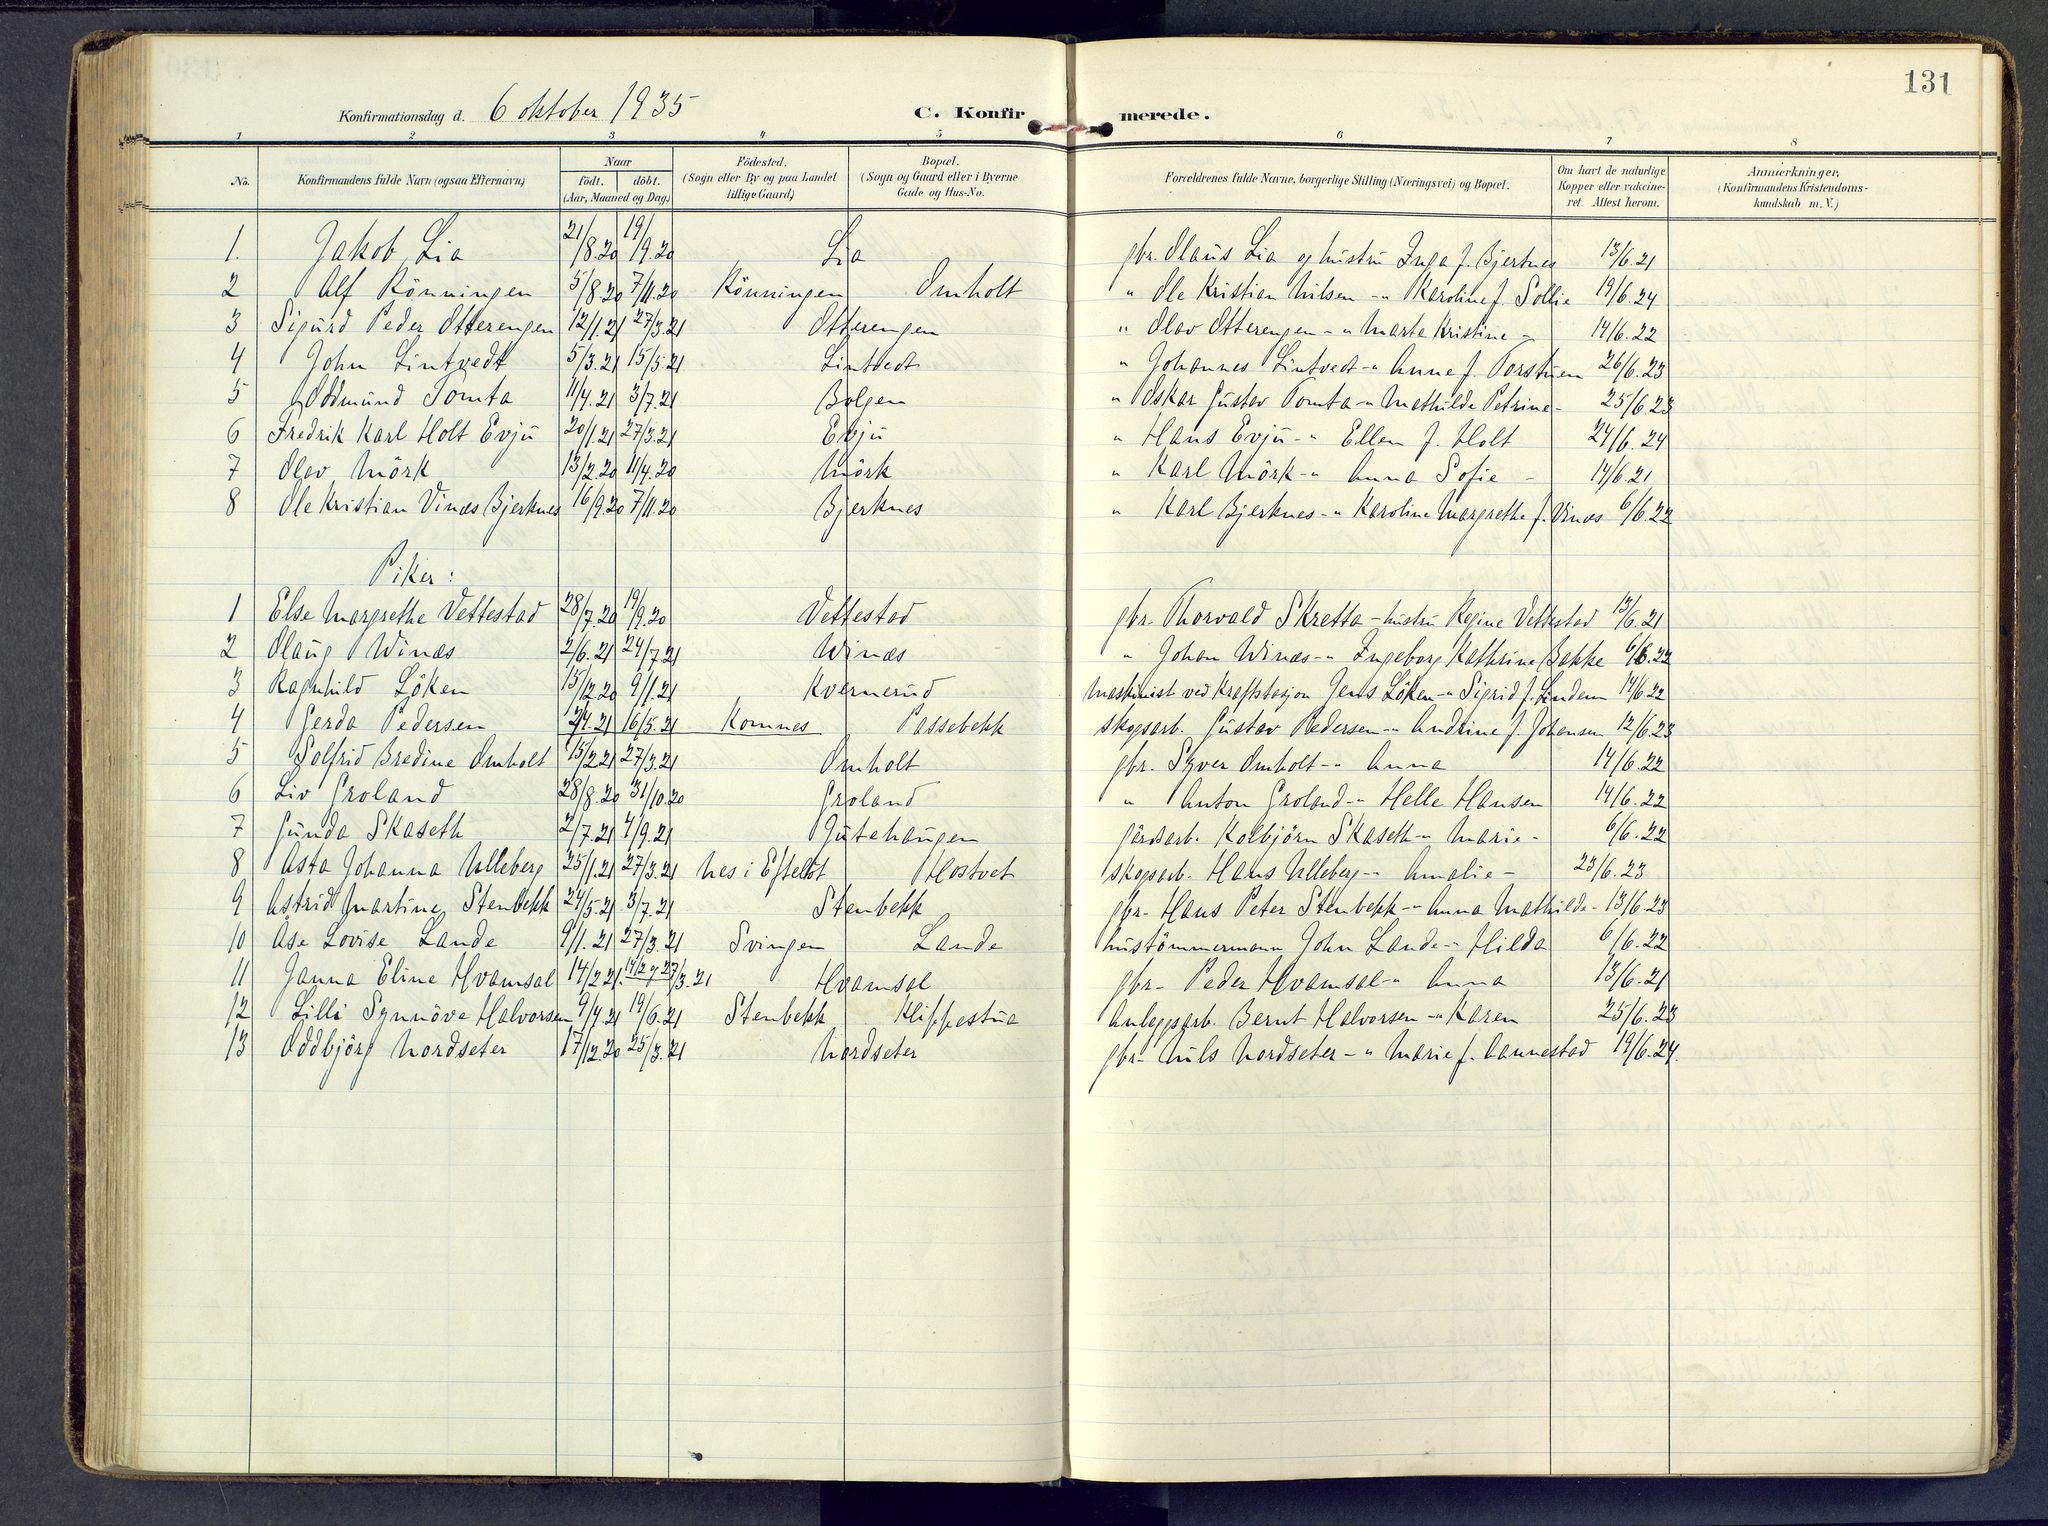 131
Konfirmationsdag d. 6 oktober 1935 C. Konfirmerede.
1 2 3 4 5 6 7 8
No. Konfirmandens fulde Navn (ogsaa Efternavn) Naar födt. döbt. (Aar, Maaned og Dag) Födested. (Sogn eller By og paa Landet tillige Gaard) Bopæl. (Sogn og Gaard eller i Byerne Gade og Hus-No. Forældrenes fulde Navne, borgerlige Stilling (Næringsvei) og Bopæl. Om havt de naturlige Kopper eller vakcineret. Attest herom. Anmærkninger, (Konfirmandens Kristendomskundskab m. V.)
1. Jakob Lia 21/8.20 19/9.20 Lia gbr. Olaus Lia og hustru Inga f. Bjertnes 13/6.21
2 Alf Rönningen 5/8.20 7/11.20 Rönningen Omholt " Ole Kristian Nilsen -" Karoline f. Sollie 19/6.24
3 Sigurd Peder Otterengen 12/1.21 27/3.21 Otterengen " Olav Otterengen -" Marte Kristine - 14/6.22
4 John Lintvedt 5/3.21 15/5.21 Lintvedt " Johannes Lintvedt -" Anne f. Torstuen 26/6.23
5 Oddmund Tomta 11/4.21 3/7.21 Bolgen " Oskar Gustav Tomta -" Mathilde Petrine - 25/6.23
6 Fredrik Karl Holt Evju 20/1.21 27/3.21 Evju " Hans Evju -" Ellen f. Holt 24/6.24
7 Olav Mörk 13/2.20 11/4.20 Mörk " Karl Mörk -" Anna Sofie - 14/6.21
8 Ole Kristian Vinæs Bjerknes 16/9.20 7/11.20 Bjerknes " Karl Bjerknes -" Karoline Margrethe f. Vinæs 6/6.22
Piker:
1 Else Margrethe Vettestad 28/7.20 19/9.20 Vettestad gbr- Thorvald Skretta - hustru Regine Vettestad 13/6.21
2 Olaug Winæs 2/6.21 24/7.21 Winæs " Johan Winæs -" Ingeborg Kathrine Bakke 6/6.22
3 Ragnhild Löken 15/12.20 9/1.21 Kvernerud Maskinist ved Kraftstasjon Jens Löken -" Sigrid f. Lindem 14/6.22
4 Gerda Pedersen 2/4.21 16/5.21 Komnes Passebekk skogsarb. Gustav Pedersen -" Andrine f. Johansen 12/6.23
5 Solfrid Bredine Omholt 15/2.21 27/3.21 Omholt gbr- Syver Omholt -" Anna 14/6.22
6 Liv Groland 28/8.20 31/10.20 Groland " Anton Groland -" Helle Hansen 14/6.22
7 Gunda Skaseth 2/7.21 4/9.21 Gutehaugen gårdsarb. Kolbjörn Skaseth -" Marie - 6/6.22
8 Asta Johanna Ulleberg 25/1.21 27/3.21 Nes i Efteløt Hostvet skogsarb. Hans Ulleberg -" Amalie - 23/6.23
9 Astrid Martine Stenbekk 24/5.21 3/7.21 Stenbekk gbr- Hans Peter Stenbekk -" Anna Mathilde - 13/6.23
10 Åse Lovise Lande 9/1.21 27/3.21 Svingen Lande hustömmermann John Lande -" Hilda 6/6.22
11 Janna Eline Hvamsal 14/2.21. 27/3.21 Hvamsal gbr- Peder Hvamsal -" Anna 13/6.21
12 Lilli Synnöve Halvorsen 9/4.21 19/6.21 Stenbekk Klippestua Anleggsarb. Bernt Halvorsen -" Karen 25/6.23
13 Oddbjörg Nordseter 17/12.20 25/3.21 Nordseter gbr- Nils Nordseter -" Marie f. Aannestad 19/6.24.